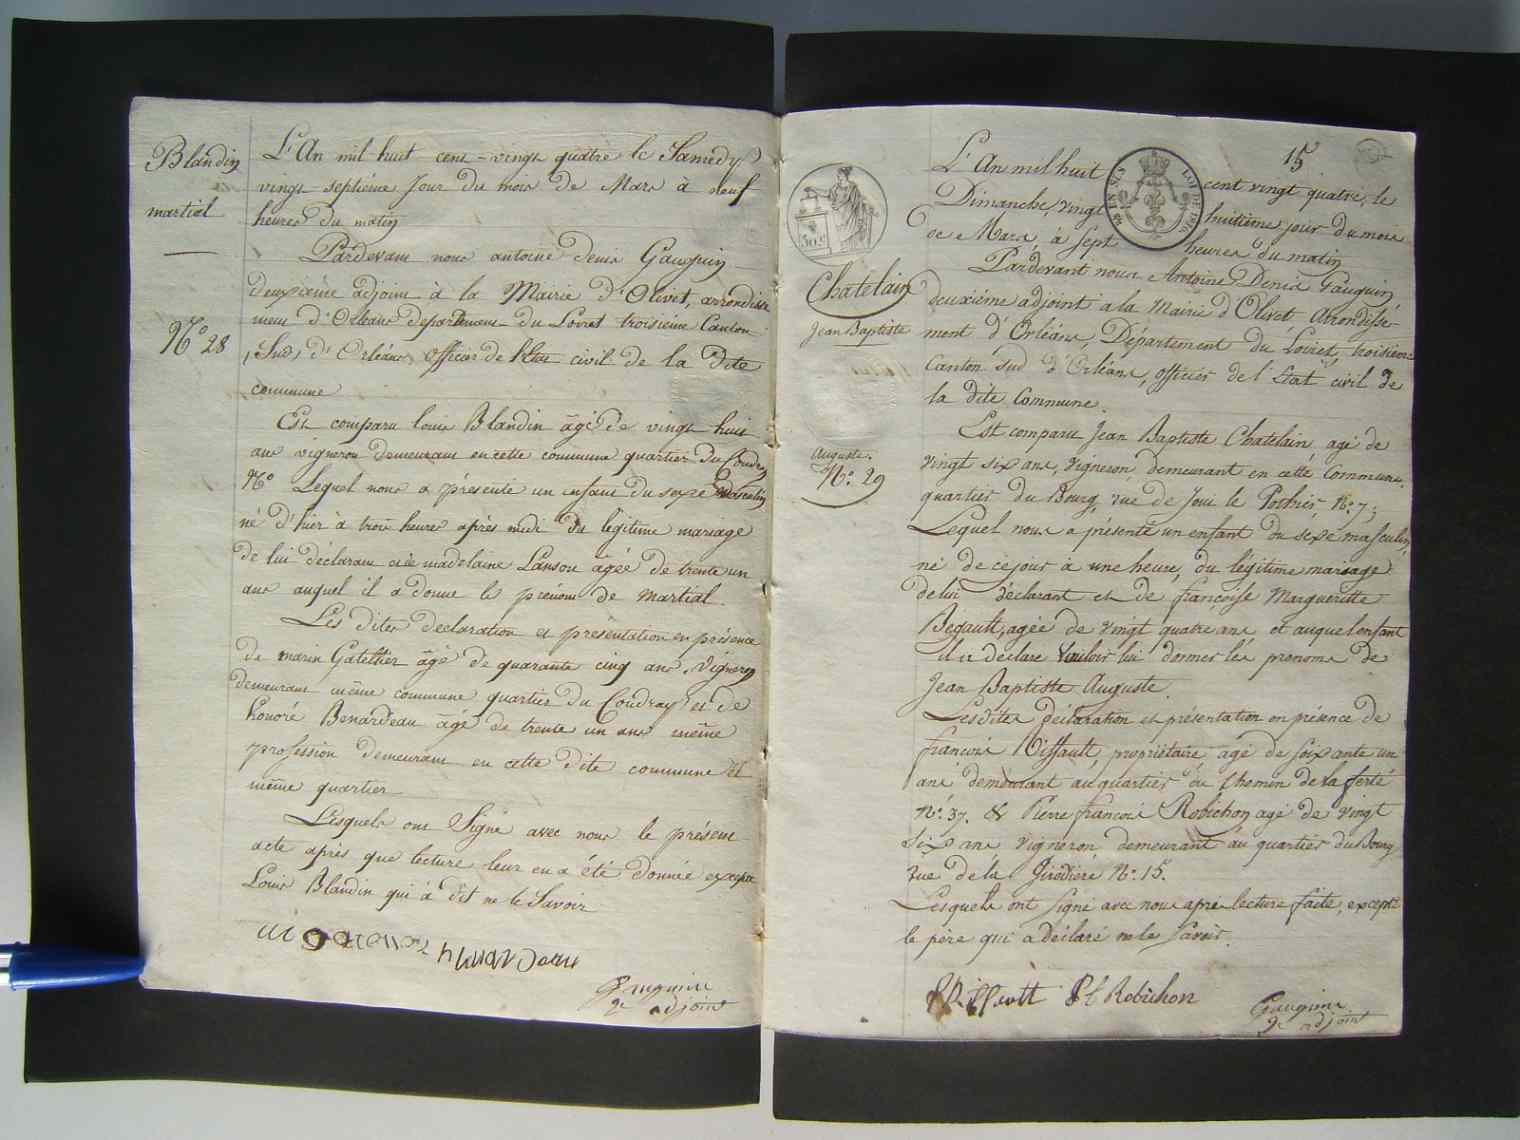 Blandin
martial
N.o 28
L'An mil huit cent - vingt quatre le Samedy
vingt - septiéme Jour du mois de Mars à neuf
heures du matin
Pardevant nous antoine Denis Gauguin
deuxiéme adjoint à la Mairie d'Olivet, arrondisse
ment d'Orléans departement du Loiret troisiéme Canton
Sud, d'Orléans officier de l'Etat civil de la dite
commune
Est comparu louis Blandin âgé de vingt huit
ans vigneron demeurant en cette commune quartier du Coudray
N.o Lequel nous a présenté un enfant du sexe masculin
né d'hier à trois heures après midi du légitime mariage
de lui déclarant et de madelaine Lanson âgée de trente un
ans auquel il a donné le prénom de martial.
Les dites declaration et présentation en présence
de marin Gatellier âgé de quarante cinq ans, vigneron
demeurant même commune quartier du Coudray et de
honoré Benardeau âgé de trente un ans même
profession demeurant en cette dite commune et
même quartier
Lesquels ont Signé avec nous le présent
acte après que lecture leur en a été donnée excepté
Louis Blandin qui a dit ne le Savoir
Gauguin
2e adjoint
15
30 c
Chatelain
Jean Baptiste
Auguste.
N.o 29
L'An mil huit cent vingt quatre, le
Dimanche, vingt huitième jour du mois
de Mars, à Sept heures du matin
EN SUS LOI DE 1816
Pardevant nous Antoine Denis Gauguin
deuxiéme adjoint a la Mairie d'Olivet Arrondisse-
ment d'Orléans, Département du Loiret, troisieme
Canton sud d'Orléans, officier de l'Etat civil de
la dite Commune.
Est comparu Jean Baptiste Chatelain, agé de
vingt six ans, vigneron, demeurant en cette Commune,
quartier du Bourg, rue de Joui le Pothier N.o 7;
Lequel nous a présenté un enfant du sexe masculin,
né de cejour à une heure, du légitime mariage
de lui déclarant et de françoise Margueritte
Begault, agée de vingt quatre ans et auquel enfant
il a declaré vouloir lui donner les prenoms de
Jean Baptiste Auguste.
Lesdites déclaration et présentation en présence de
francois Vissault, propriétaire agé de soixante un
ans demeurant au quartier du Chemin de la ferté
N.o 37. & Pierre francois Robichon agé de vingt
six ans vigneron demeurant au quartier du Bourg
rue de la Girodiere N.o 15.
Lesquels ont signé avec nous après lecture faite, excepté
le père qui a déclaré ne le savoir.
Robichon
Gauguin
2e adjoint